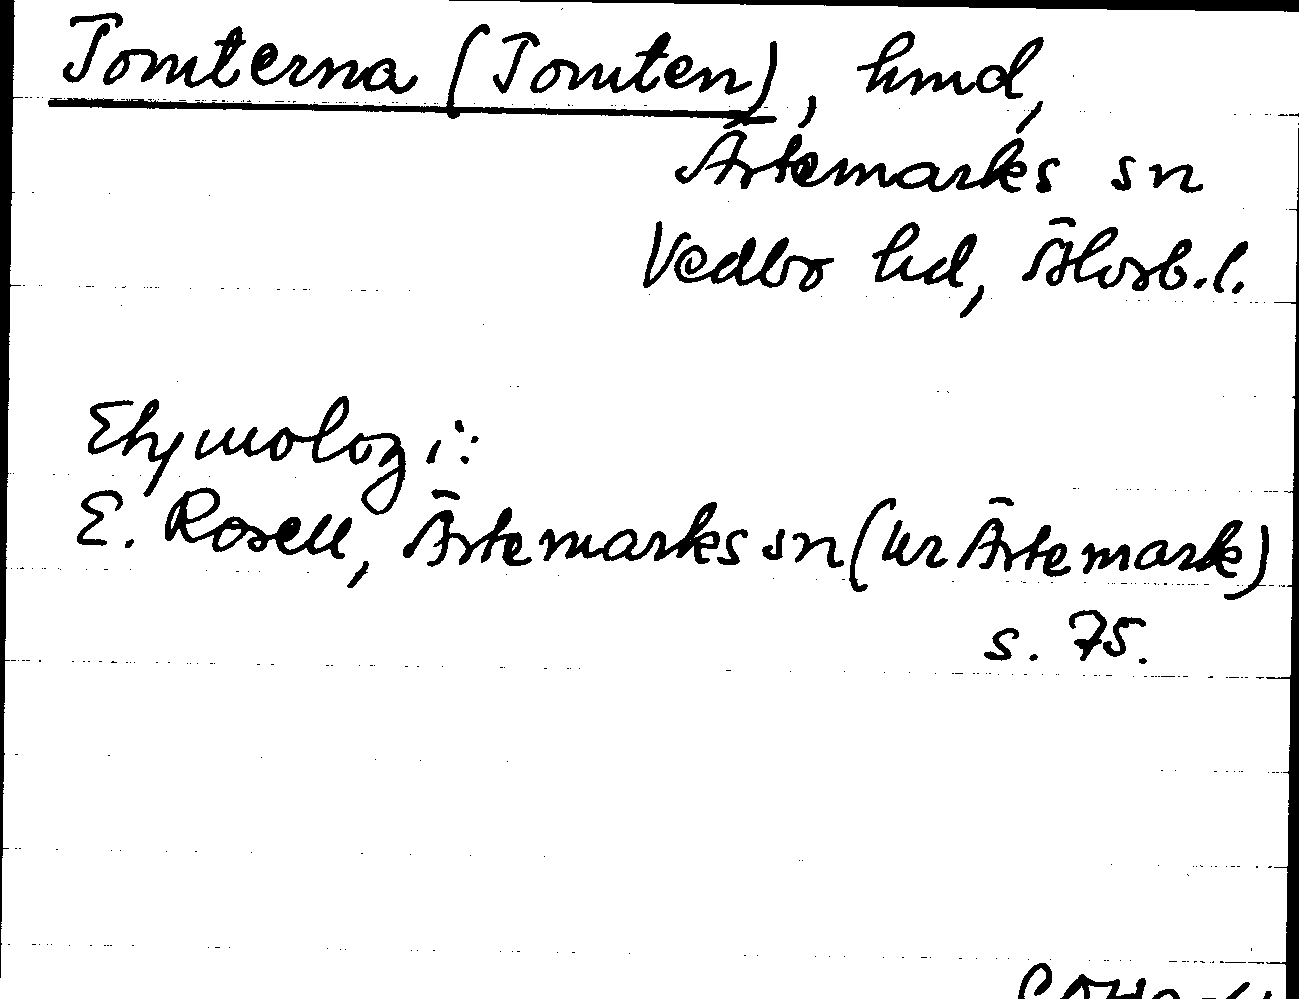 Tomterna (Tomten), hmd,
Ärtemarks sn
Vedbo hd, Älvsb.l.
Etymologi:
E. Rosell, Ärtemarks sn (ur Ärtemark)
s. 75.